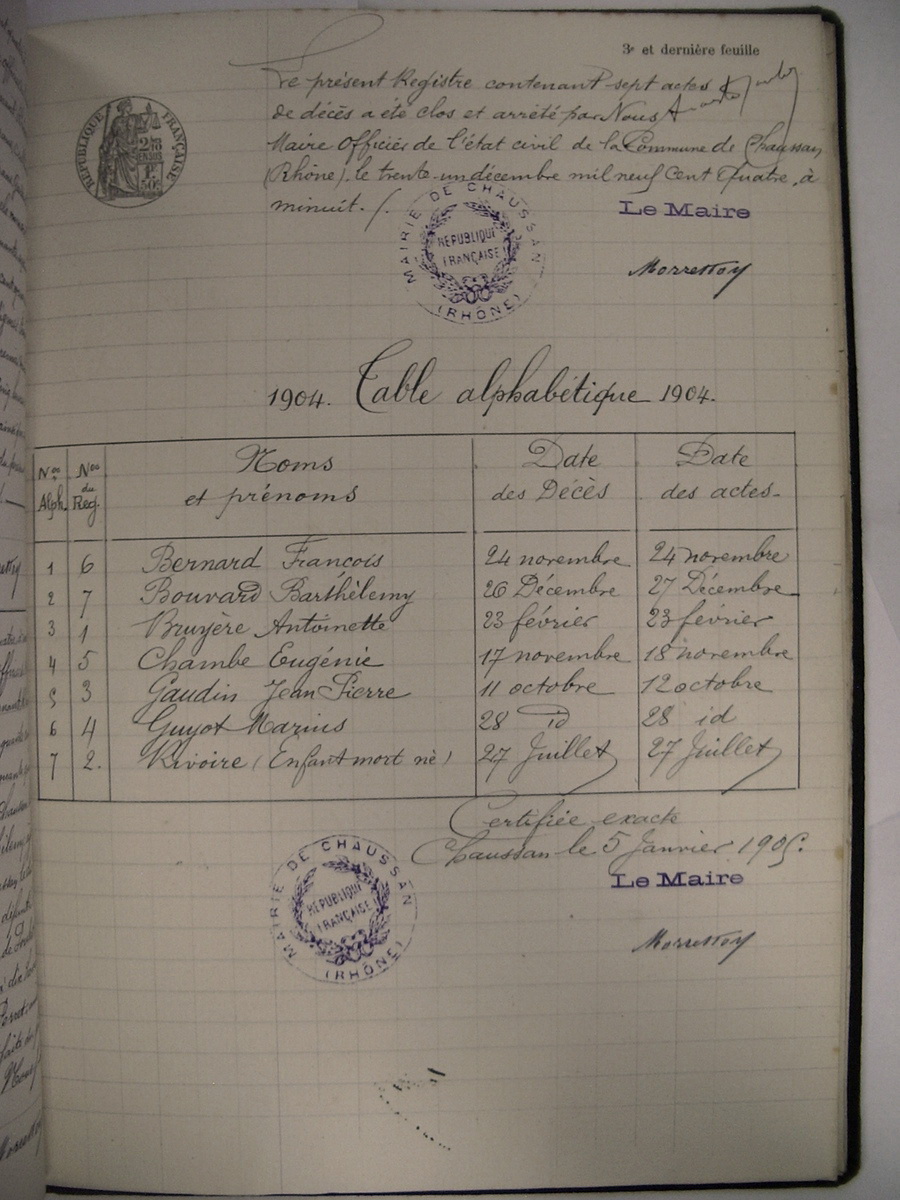 3e et dernière feuille
RÉPUBLIQUE FRANÇAISE
Le présent Registre contenant sept actes
de décès a été clos et arrêté par Nous
Maire Officier de l'état civil de la Commune de Chaussan
(Rhône), le trente-un décembre mil neuf Cent Quatre, à
minuit. /.
Le Maire
MAIRIE DE CHAUSSAN
RÉPUBLIQUE
FRANÇAISE
(RHÔNE)
1904. Table alphabétique 1904.
Nos Alph. Nos du Reg. Noms et prénoms Date des Décès Date des actes
1 6 Bernard François 24 novembre 24 novembre
2 7 Bouvard Barthélemy 26 Décembre 27 Décembre
3 1 Bruyere Antoinette 23 février 23 février
4 5 Chambe Eugénie 17 novembre 18 novembre
5 3 Gaudin Jean Pierre 11 octobre 12 octobre
6 4 Guyot Marius 28 id 28 id
7 2. Rivoire (Enfant mort né) 27 Juillet 27 Juillet
Certifiée exacte
Chaussan le 5 Janvier 1905.
Le Maire
MAIRIE DE CHAUSSAN
RÉPUBLIQUE
FRANÇAISE
(RHÔNE)